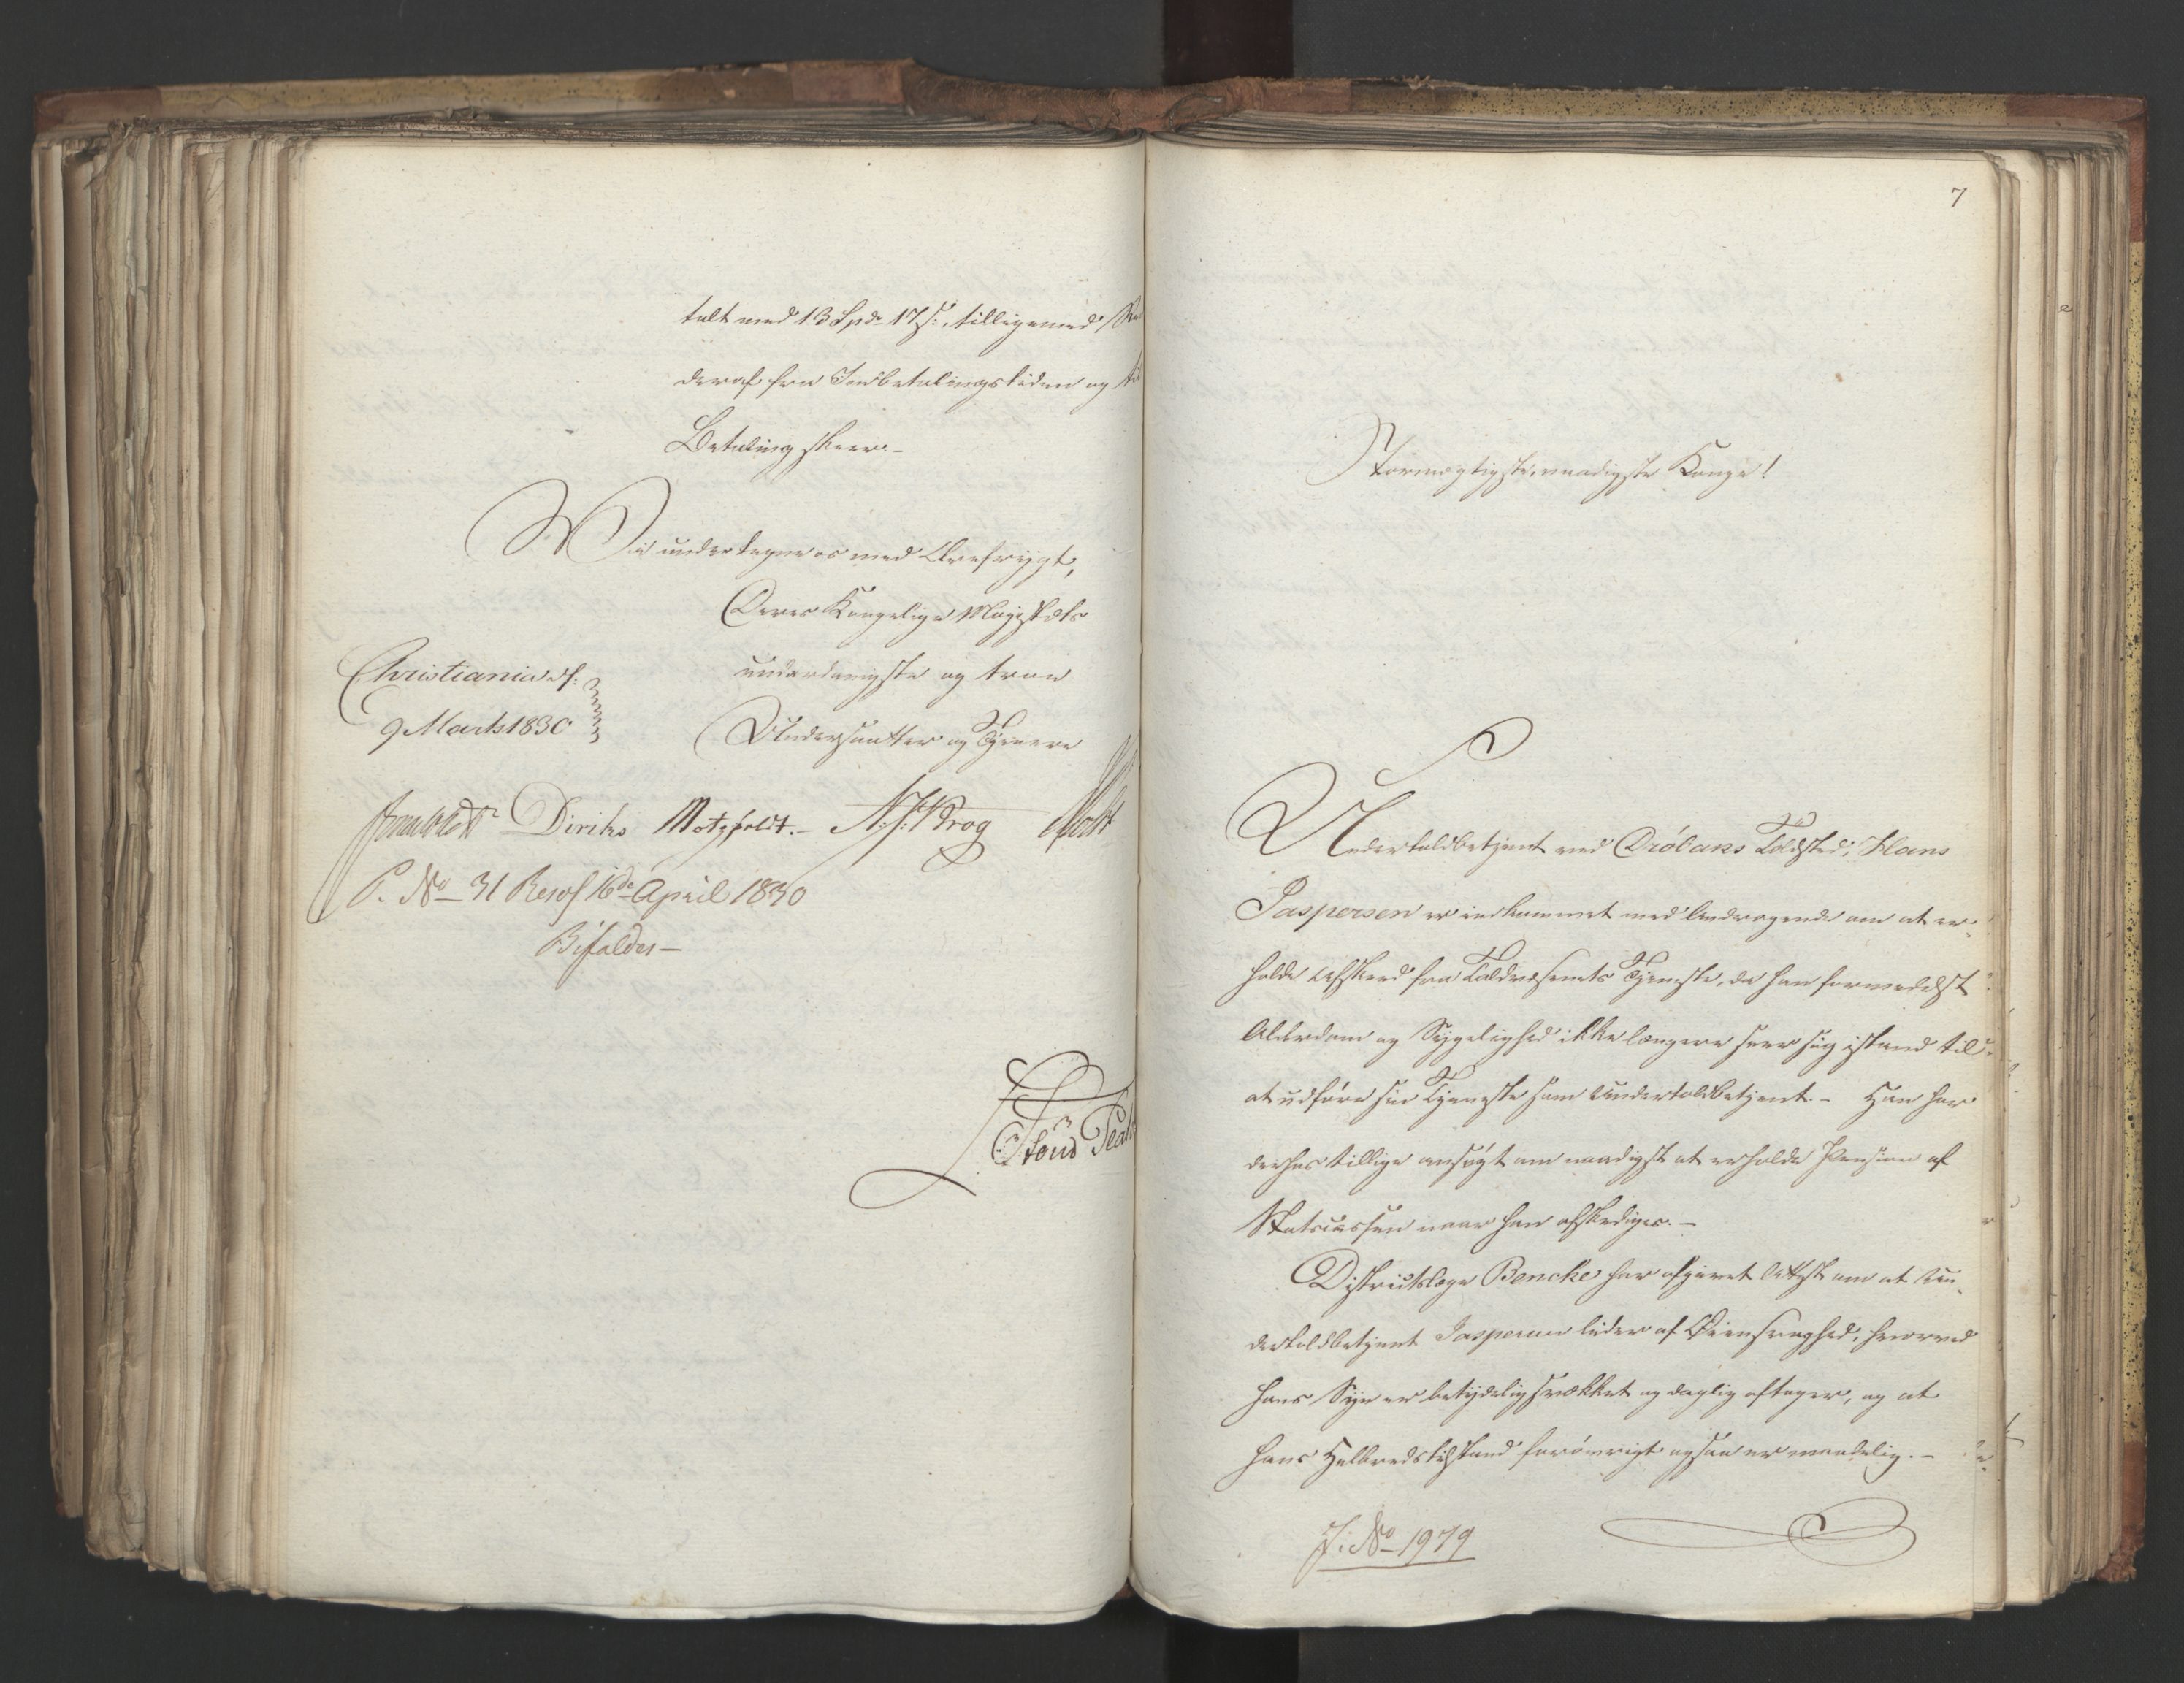 talt med 13 Spd 17 s: tilligemed
deraf fra Indbetalingstiden og til
Betaling skeer.-
Vi undertegne os med Ærefrygt,
Deres Kongelige Majestæts
underdanigste og troe
Undersaatter og Tjenere
Christiania d:
9 Marts 1830
Diriks Motzfeldt.- N. J. Krog
P. No 31 Resol 16de April 1830
Bifaldes-
7
Stormægtigste, naadigste Konge!
Undertoldbetjent ved Drøbaks Toldsted, Hans
Jaspersen er indkommet med Andragende om at er-
holde Afskeed fra Toldvæsenets Tjeneste, da han formedelst
Alderdom og Sygelighed ikke længere seer sig istand til
at udføre sin Tjeneste som Undertoldbetjent.- Han har
derhos tillige ansøgt om naadigst at erholde Pension af
Statscassen naar han afskediges.-
Districtslæge Bencke har afgivet Attest om at Un-
dertoldbetjent Jaspersen lider af Øiensvaghed, hvorved
hans Syn er betydelig svækket og daglig aftager, og at
hans Helbredstilstand forøvrigt ogsaa er maadelig.-
J: No 1979